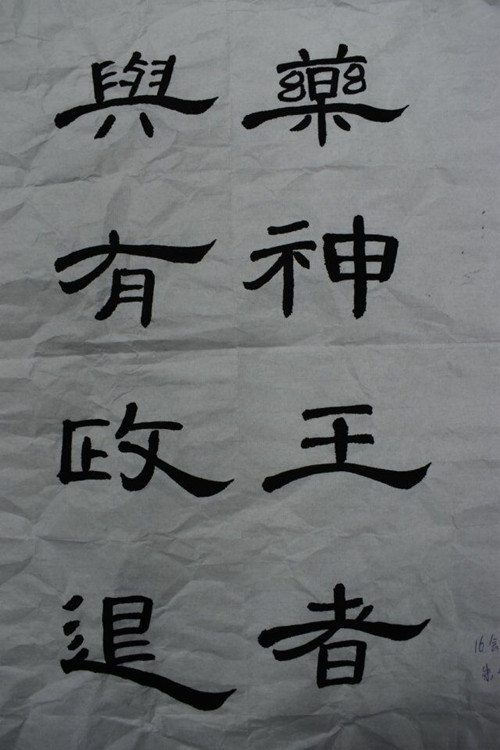 藥神王者
與有政退